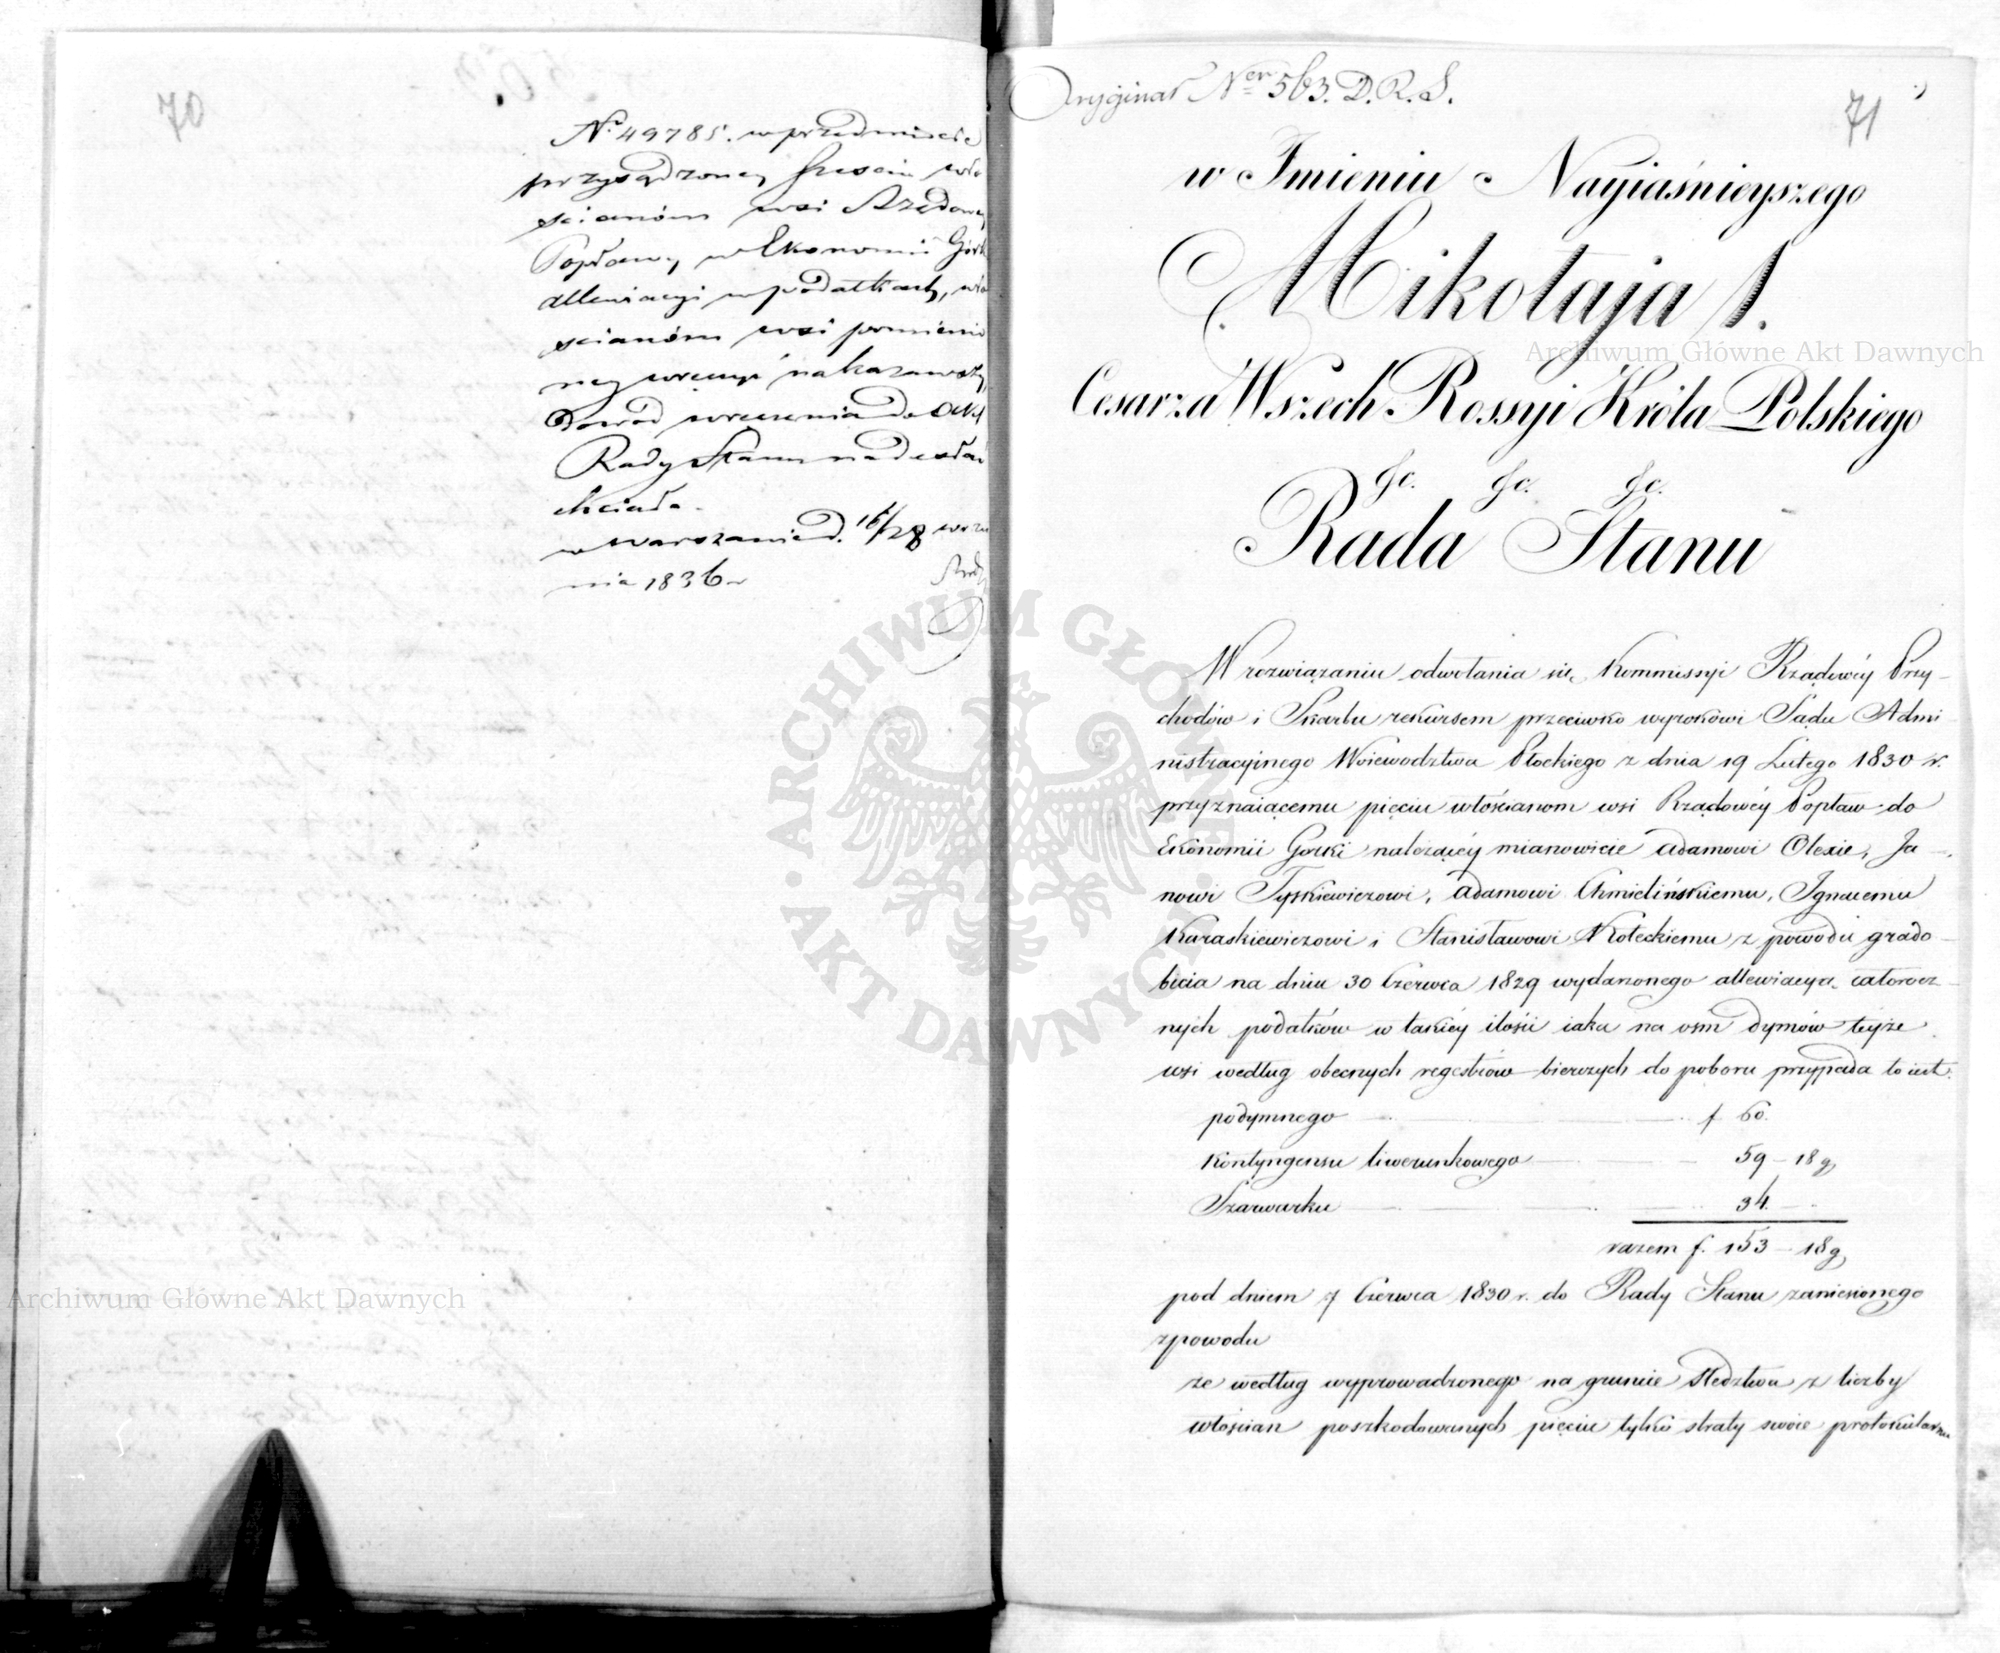 70
N° 49785. w przedmiocie
przysądzoney sześciu wło
scianóm wsi Rządowey
Popławy w Ekonomii Górk
allewiacyi w podatkach, wło
scianóm wsi pomienio
ney wręczyć nakazawszy,
Dowód wręczenia do Akt
Rady Stanu nadesłać
chciała.
w Warszawie d. 16/28 wrze
nia 1836 r
Oryginał Ner 563. D.R.S.
71
w Imieniu Nayiaśnieyszego
Mikołaja I.
Cesarza Wszech Rossyi Króla Polskiego
&c. &c. &c.
Rada Stanu
W rozwiązaniu odwołania się Kommissyi Rządowéy Przy-
chodów i Skarbu rekursem przeciwko wyrokowi Sądu Admi
nistracyinego Woiewodztwa Płockiego z dnia 19 Lutego 1830 r.
przyznaiącemu pięciu włościanom wsi Rządowéy Popław do
Ekonomii Gorki należącéy mianowicie Adamowi Olexie, Ja-
nowi Tyskiewiczowi, Adamowi Chmielińskiemu, Ignacemu
Karaskiewiczowi i Stanisławowi Kołeckiemu z powodu grado-
bicia na dniu 30 Czerwca 1829 wydarzonego allewiacyą całorocz-
nych podatków w takiéy ilości iaka na osm dymów teyże
wsi według obecnych regestrów bierczych do poboru przypada to iest.
podymnego f 60.
Kontyngensu liwerunkowego 59 - 18 g
Szarwarku 34. -
razem f. 153 - 18 g
pod dniem 7 Czerwca 1830 r. do Rady Stanu zaniesionego
z powodu
że według wyprowadzonego na gruncie śledztwa z liczby
włościan poszkodowanych pięciu tylko straty swoie protokularnie
Archiwum Główne Akt Dawnych
Archiwum Główne Akt Dawnych
ARCHIWUM GŁÓWNE · AKT DAWNYCH ·